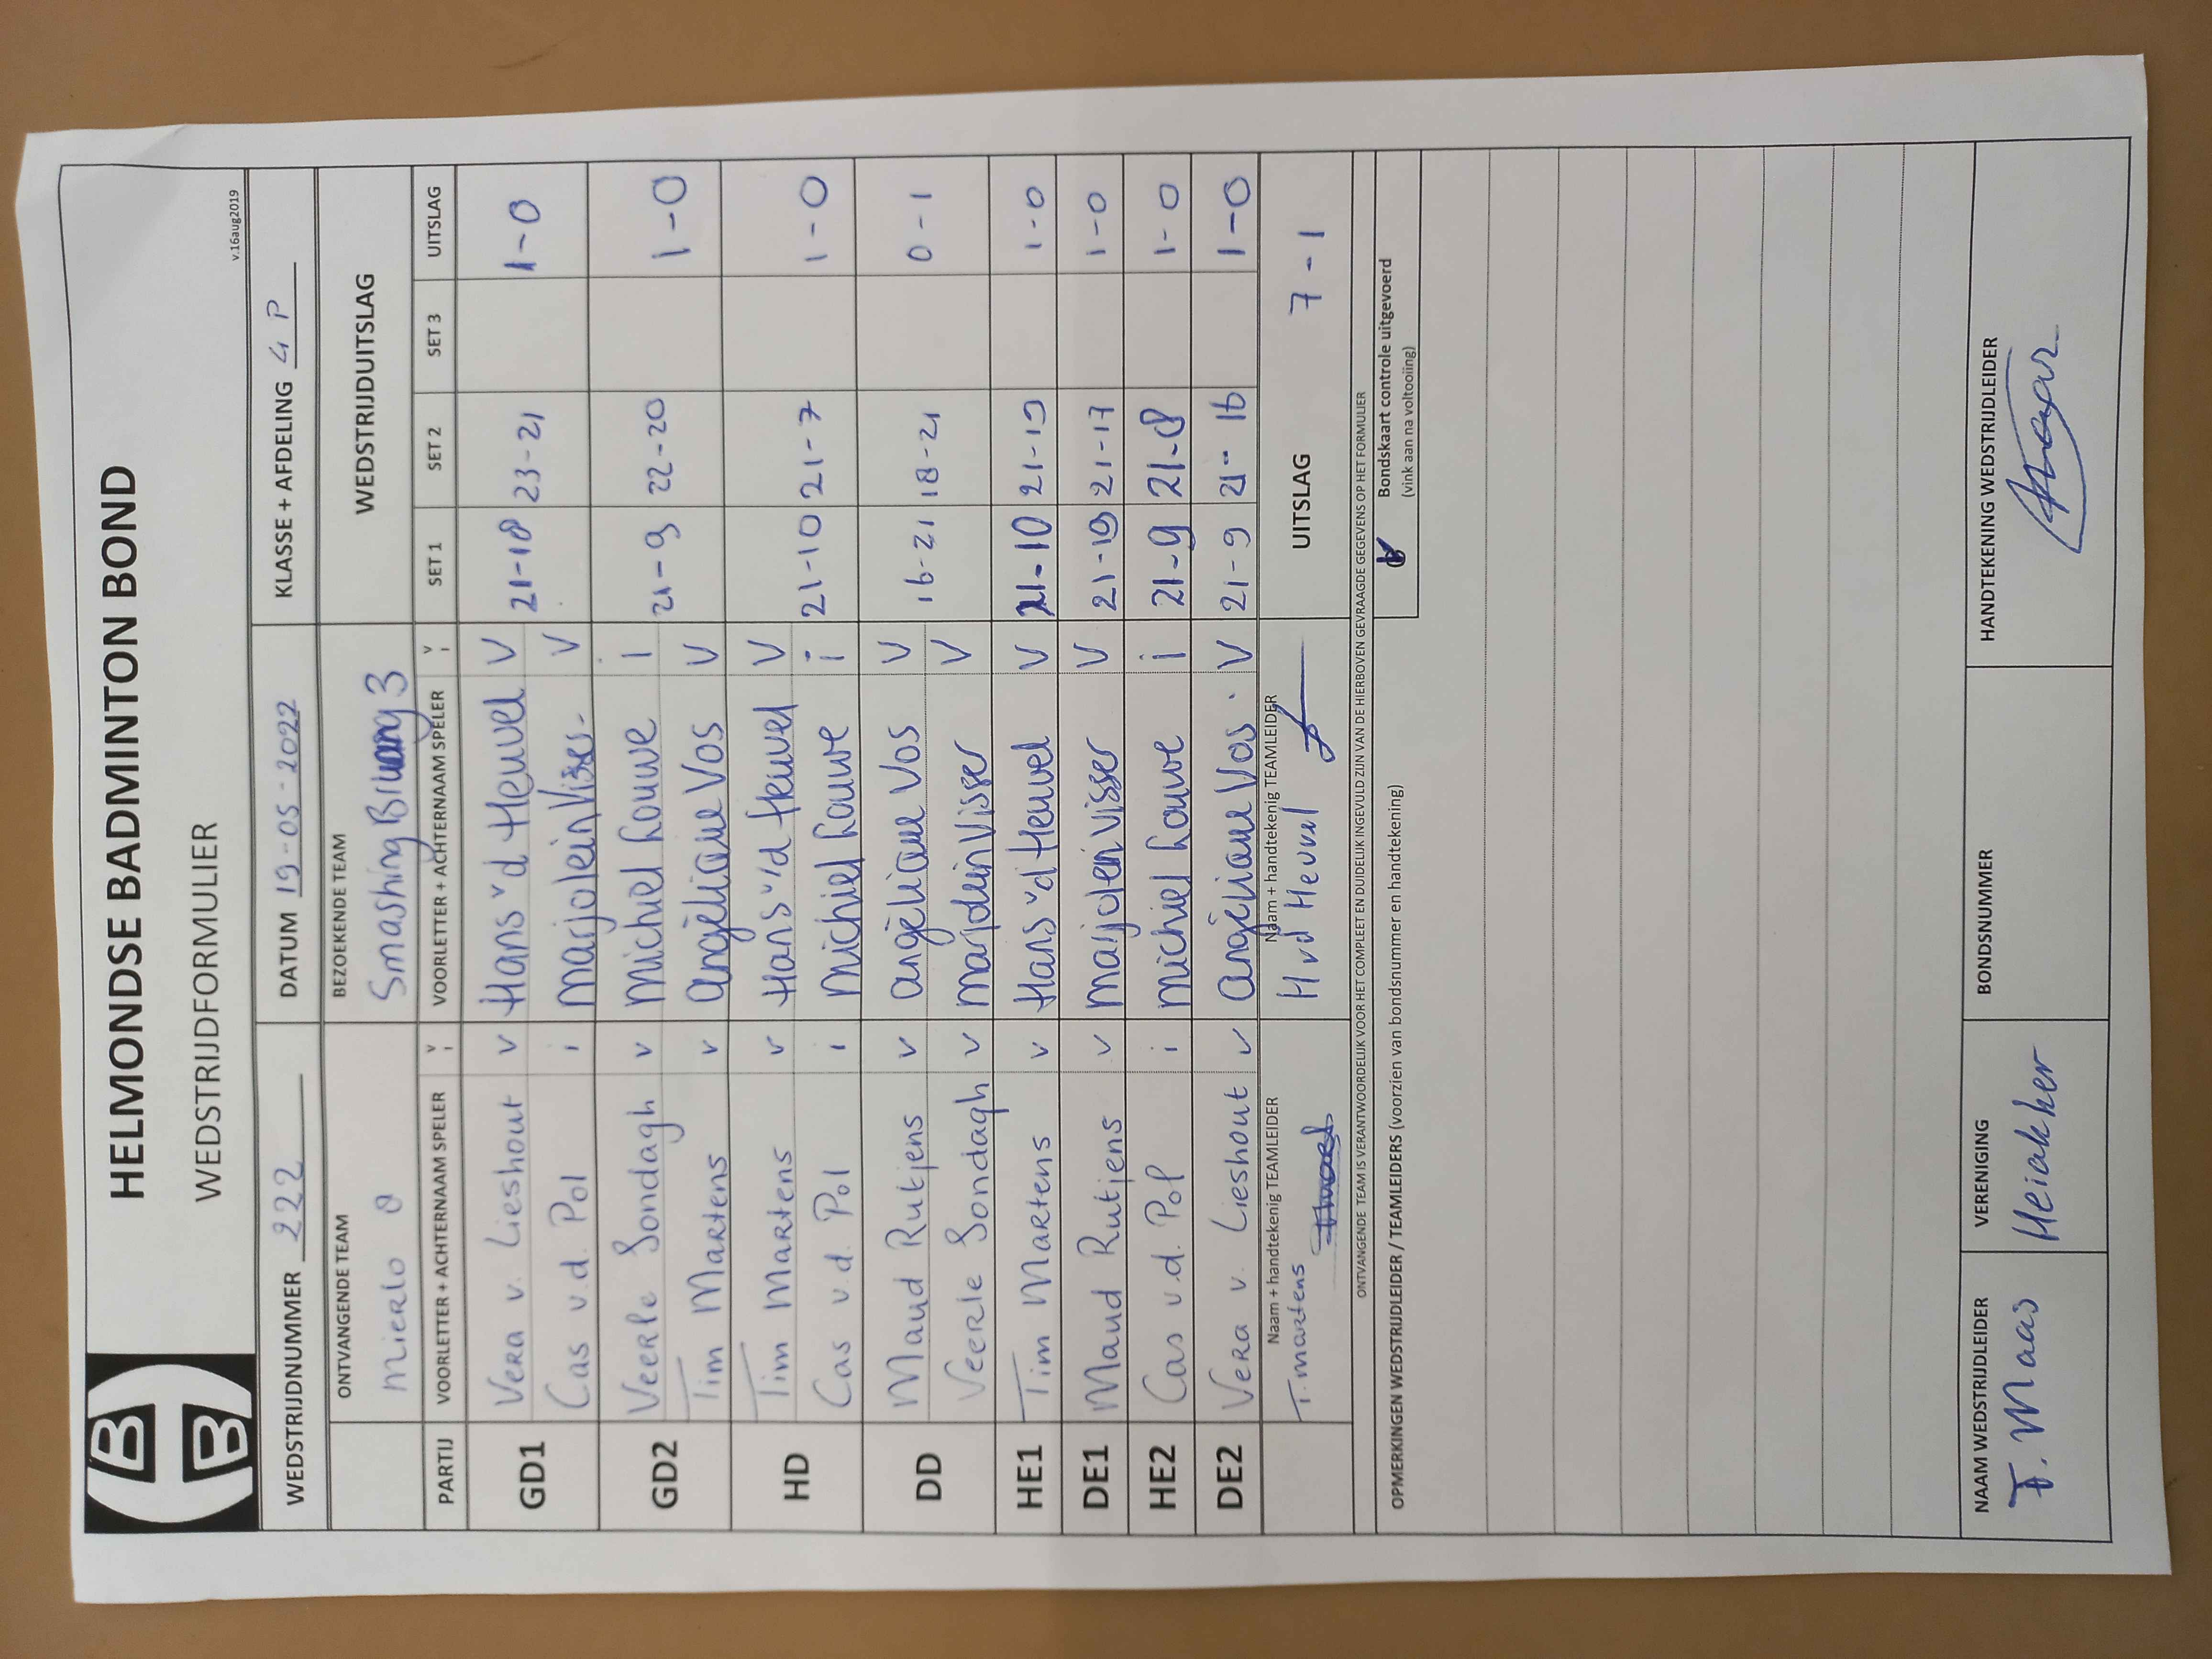 HELMONDSE BADMINTON BOND
WEDSTRIJDFORMULIER
v.16aug2019
WEDSTRIJDNUMMER 222 DATUM 19-05-2022 KLASSE + AFDELING 4 P
ONTVANGENDE TEAM BEZOEKENDE TEAM WEDSTRIJDUITSLAG
Mierlo 8 Smashing 3
PARTIJ VOORLETTER + ACHTERNAAM SPELER V I VOORLETTER + ACHTERNAAM SPELER V I SET 1 SET 2 SET 3 UITSLAG
GD1 Vera v. Lieshout v Hans vd Heuvel V 21-18 23-21 1-0
Cas v.d. Pol i Marjolein Visser V
GD2 Veerle Sondagh v Michiel Louwe I 21-9 22-20 1-0
Tim Martens v Angèliane Vos V
HD Tim Martens v Hans v/d Heuvel V 21-10 21-7 1-0
Cas v.d. Pol i Michiel Louwe i
DD Maud Rutjens v Angèliane Vos V 16-21 18-21 0-1
Veerle Sondagh v Marjolein Visser V
HE1 Tim Martens v Hans vd Heuvel V 21-10 21-19 1-0
DE1 Maud Rutjens v Marjolein Visser V 21-19 21-17 1-0
HE2 Cas v.d. Pol i Michiel Louwe i 21-9 21-8 1-0
DE2 Vera v. Lieshout v Angèliane Vos. V 21-9 21-16 1-0
Naam + handtekenig TEAMLEIDER Naam + handtekenig TEAMLEIDER UITSLAG 7-1
T. Martens H vd Heuvel
ONTVANGENDE TEAM IS VERANTWOORDELIJK VOOR HET COMPLEET EN DUIDELIJK INGEVULD ZIJN VAN DE HIERBOVEN GEVRAAGDE GEGEVENS OP HET FORMULIER
OPMERKINGEN WEDSTRIJDLEIDER / TEAMLEIDERS (voorzien van bondsnummer en handtekening)
Bondskaart controle uitgevoerd
(vink aan na voltooiing)
NAAM WEDSTRIJDLEIDER VERENIGING BONDSNUMMER HANDTEKENING WEDSTRIJDLEIDER
F. Maas Heiakker